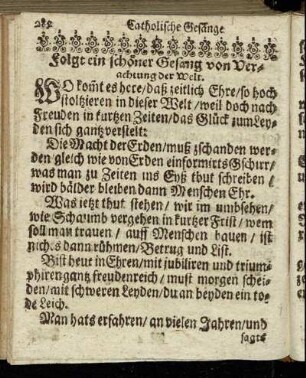 Catholische Gesänge
Folgt ein schöner Gesang von Ver-
achtung der Welt.
WO kom̃t es here/ daß zeitlich Ehre/ so hoch
stoltzieren in dieser Welt/ weil doch nach
Freuden in kurtzen Zeiten/ das Glück zum Ley-
den sich gantz verstelt:
Die Macht der Erden/ muß zschanden wer-
den gleich wie von Erden einformirts Gschirr/
was man zu Zeiten ins Eyß thut schreiben/
wird bälder bleiben dann Menschen Ehr.
Was jetzt thut stehen/ wir im umbsehen/
wie Schaumb vergehen in kurtzer Frist/ wem
soll man trauen/ auff Menschen bauen/ ist
nichts dann rühmen/ Betrug und List.
Bist heut in Ehren/ mit jubiliren und trium-
phiren gantz freudenreich/ must morgen schei-
den/ mit schweren Leyden/ du an beyden ein to-
de Leich.
Man hats erfahren/ an vielen Jahren/ und
sagts